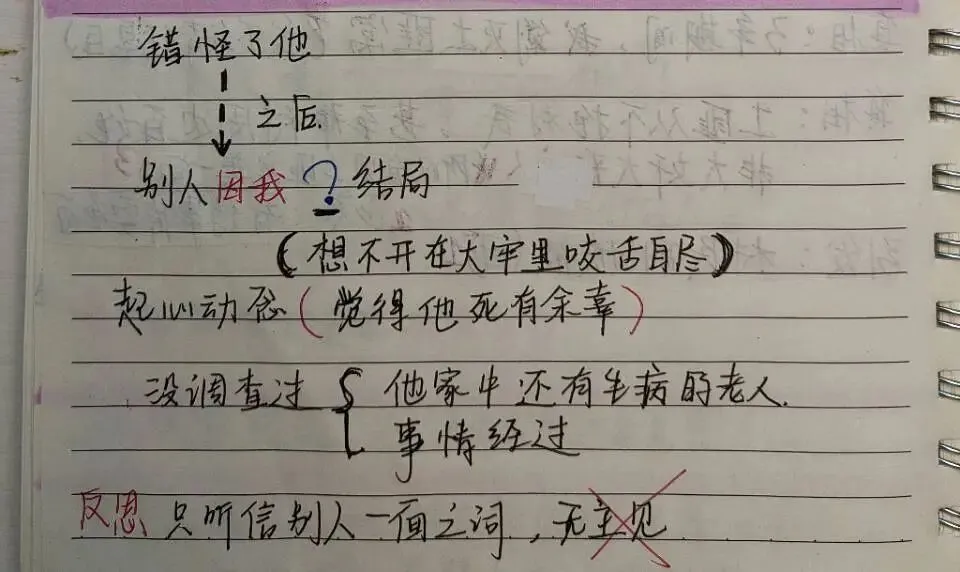 错怪了他
之后
别人因我?结局
(想不开在大牢里咬舌自尽)
起心动念(觉得他死有余辜)
没调查过{他家中还有生病的老人.
事情经过
反思 只听信别人一面之词,无主见